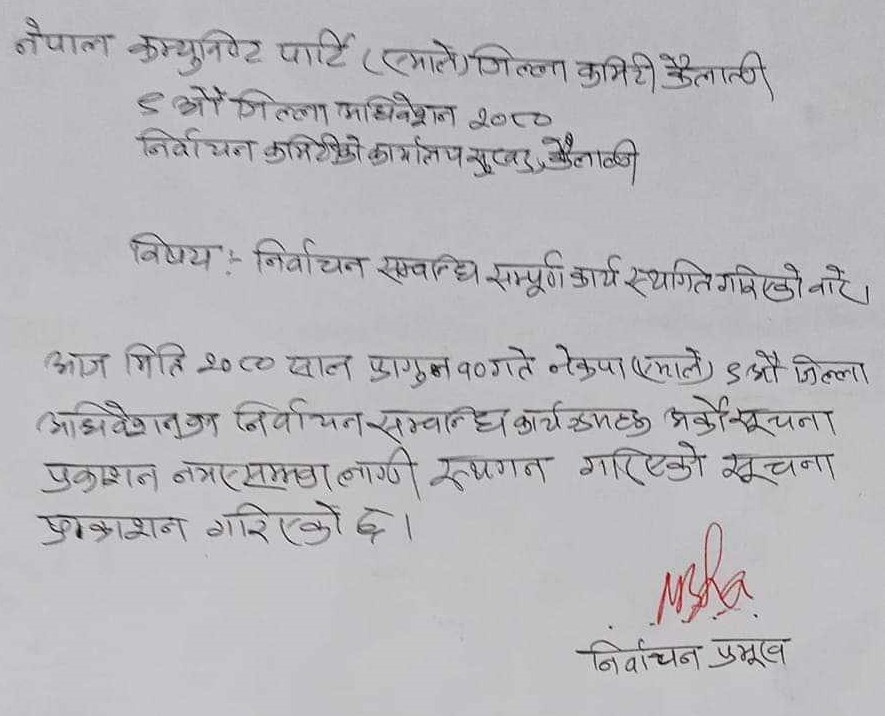 नेपाल कम्युनिष्ट पार्टि (एमाले) जिल्ला कमिटी कैलाली
९ औं जिल्ला अधिवेशन २०८०
निर्वाचन कमिटीको कार्यालय सुखड, कैलाली
विषय :- निर्वाचन सम्वन्धि सम्पूर्ण कार्य स्थगित गरिएको वारे।
आज मिति २०८० साल फागुन १० गते नेकपा (एमाले) ९ औं जिल्ला
अधिवेशनका निर्वाचन सम्वन्धि कार्यक्रमहरु अर्को सूचना
प्रकाशन नभएसम्मका लागी स्थगन गरिएको सूचना
प्रकाशन गरिएको छ।
निर्वाचन प्रमूख